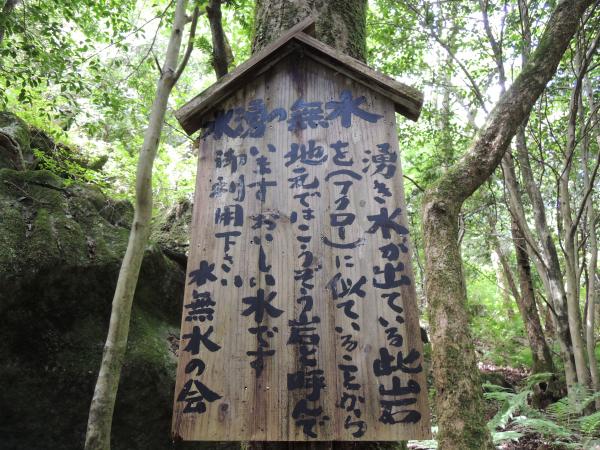 水無の湧水
湧き水が出ている此岩
を(フクロー)に似ていることから
地元ではこうぞう岩と呼んで
います おいしい水です
御利用下さい
水無水の会